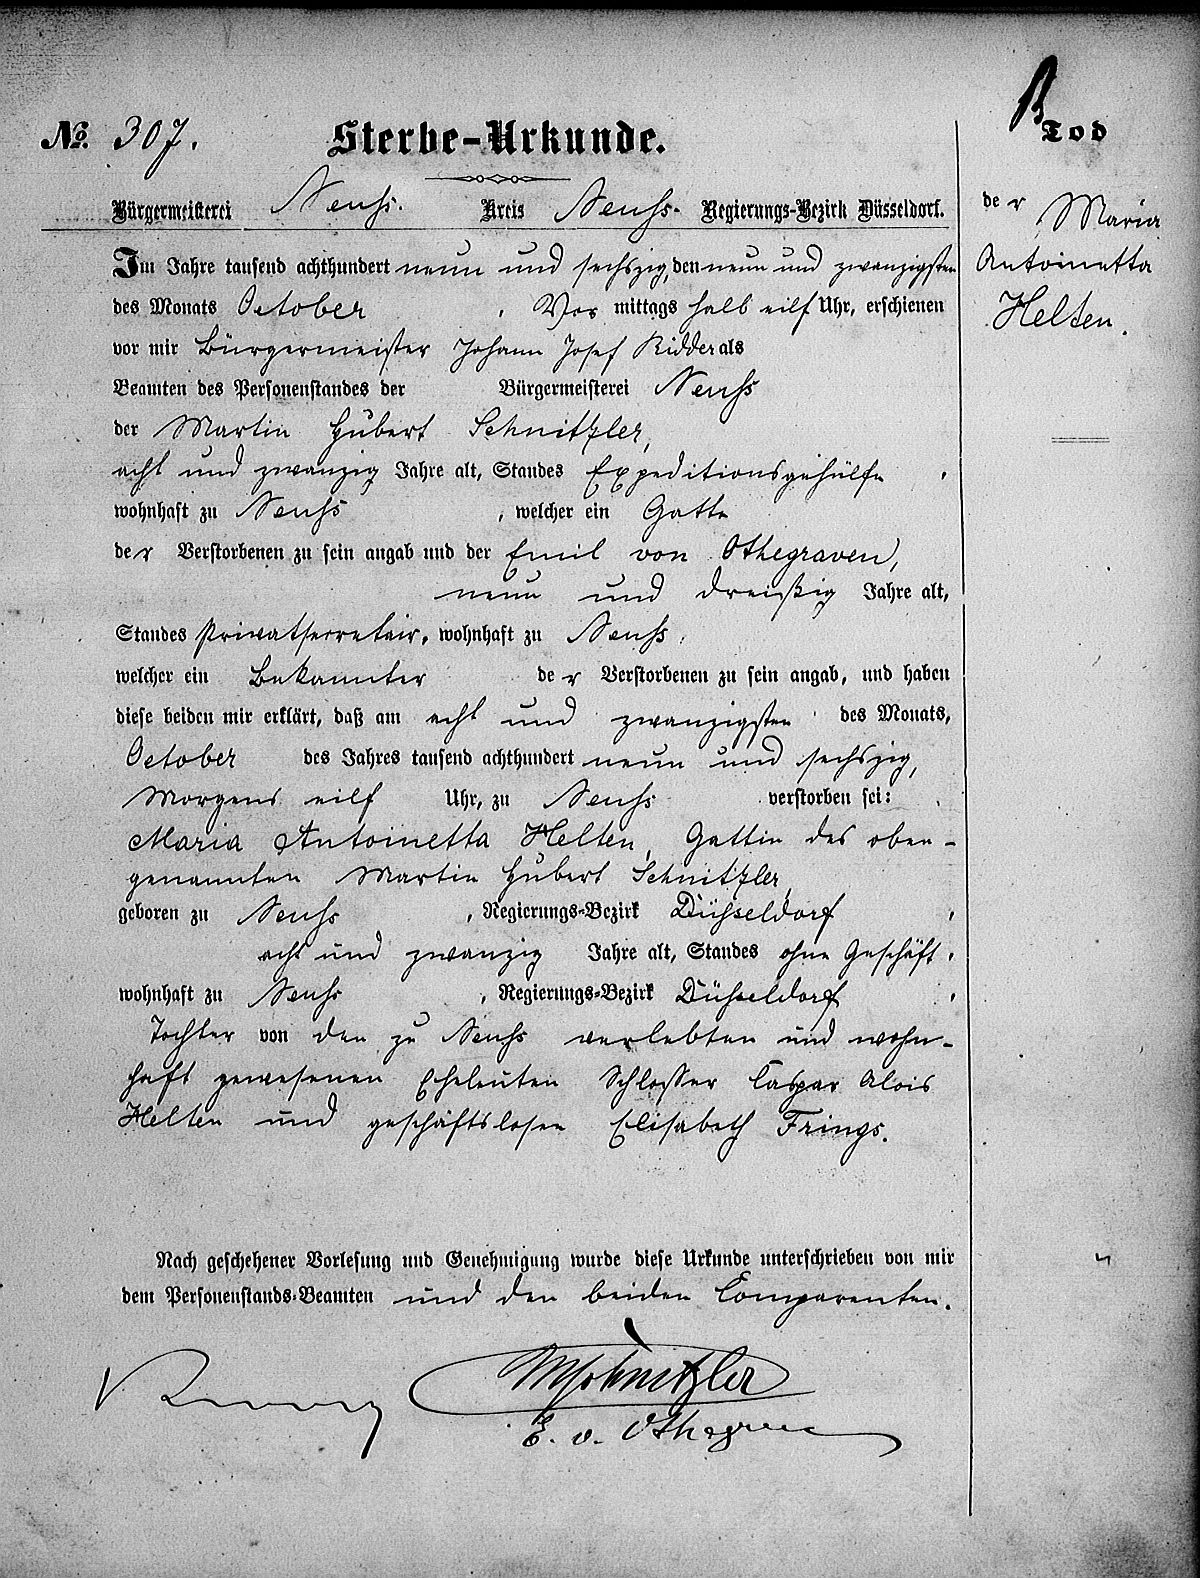 № 307.
Sterbe-Urkunde.
Bürgermeisterei Neuß. Kreis Neuß. Regierungs-Bezirk Düsseldorf.
Im Jahre tausend achthundert neun und sechszig, den neun und zwanzigsten
des Monats October, Vormittags halb eilf Uhr, erschienen
vor mir Bürgermeister Johann Josef Ridder als
Beamten des Personenstandes der Bürgermeisterei Neuß
der Martin Hubert Schnitzler,
acht und zwanzig Jahre alt, Standes Expeditionsgehülfe,
wohnhaft zu Neuß, welcher ein Gatte
der Verstorbenen zu sein angab und der Emil von Othegraven,
neun und dreißig Jahre alt,
Standes Privatsecretair, wohnhaft zu Neuß,
welcher ein Bekannter der Verstorbenen zu sein angab, und haben
diese beiden mir erklärt, daß am acht und zwanzigsten des Monats,
October des Jahres tausend achthundert neun und sechszig,
Morgens eilf Uhr, zu Neuß verstorben sei:
Maria Antoinetta Helten, Gattin des oben-
genannten Martin Hubert Schnitzler,
geboren zu Neuß, Regierungs-Bezirk Düsseldorf,
acht und zwanzig Jahre alt, Standes ohne Geschäft,
wohnhaft zu Neuß, Regierungs-Bezirk Düsseldorf,
Tochter von den zu Neuß verlebten und wohn-
haft gewesenen Eheleuten Schlosser Caspar Alois
Helten und geschäftslosen Elisabeth Frings.
Nach geschehener Vorlesung und Genehmigung wurde diese Urkunde unterschrieben von mir
dem Personenstands-Beamten und den beiden Comparenten.
MSchnitzler
E. v. Othegraven
Tod
der Maria
Antoinetta
Helten.